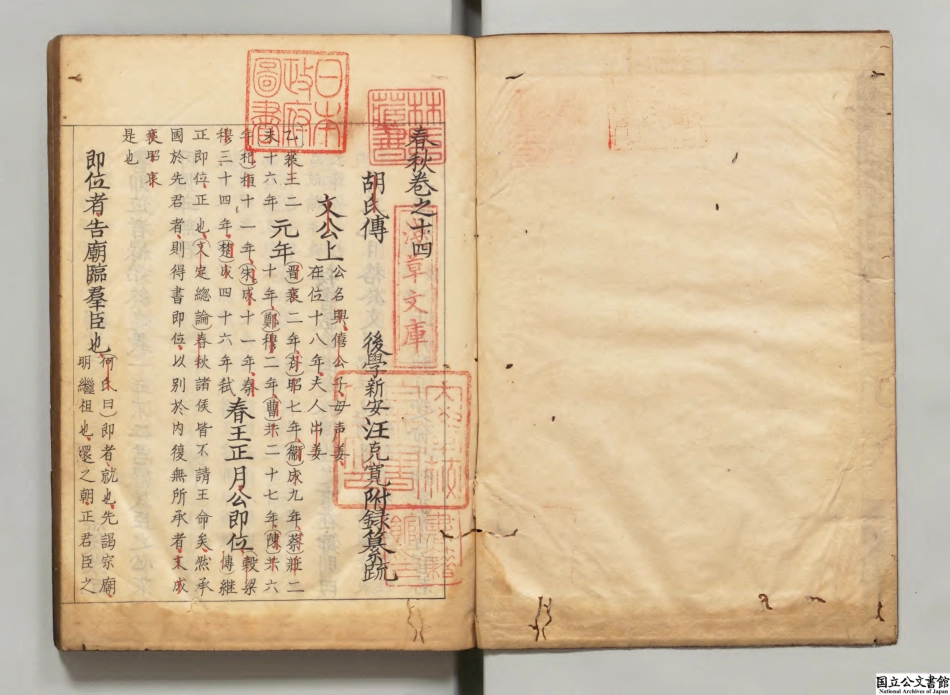 春秋巻之十四
胡氏傳 後學新安汪克寛附録纂䟽
文公上
公名興僖公子母声姜
在位十八年夫人出姜
乙襄王二
未十六年
元年
晋襄二年齊昭七年衛成九年蔡莊二
十年鄭穆二年曹共二十七年陳共六
年杞桓十一年宋成十一年秦
穆三十四年楚成四十六年弑
春王正月公即位
穀梁
傳継
正即位正也文定總論春秋諸侯皆不請王命矣然承
國於先君者則得書即位以別於内復無所承者文成
襄昭哀
是也
即位者告廟臨羣臣也
何氏曰即者就也先謁宗廟
明繼祖也還之朝正君臣之
日本政府圖書
林氏藏書
淺草文庫
国立公文書館
National Archives of Japan